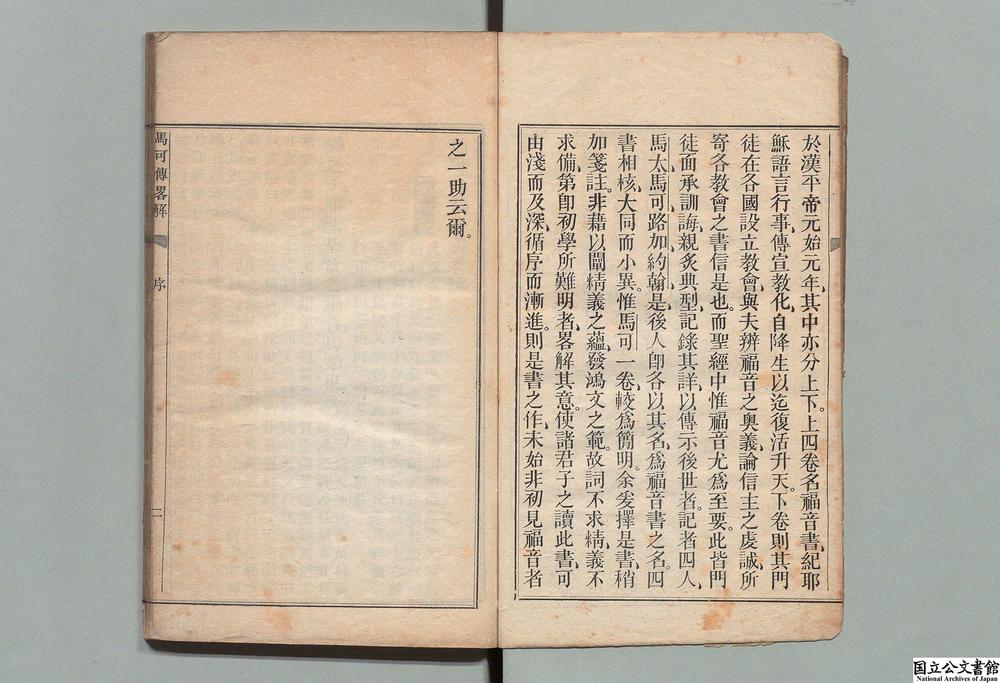 於漢平帝元始元年、其中亦分上下。上四卷名福音書、紀耶
穌語言行事、傳宣教化、自降生以迄復活升天。下卷則其門
徒在各國設立教會、與夫辨福音之奧義、論信主之虔誠、所
寄各教會之書信是也。而聖經中惟福音尤爲至要。此皆門
徒面承訓誨、親炙典型、記錄其詳、以傳示後世者。記者四人、
馬太、馬可、路加、約翰是、後人卽各以其名、爲福音書之名。四
書相核、大同而小異。惟馬可一卷、較爲簡明。余爰擇是書、稍
加箋註。非藉以闡精義之蘊、發鴻文之範。故詞不求精、義不
求備、第卽初學所難明者、畧解其意、使諸君子之讀此書、可
由淺而及深、循序而漸進。則是書之作、未始非初見福音者
之一助云爾。
馬可傳畧解
序
二
国立公文書館
National Archives of Japan